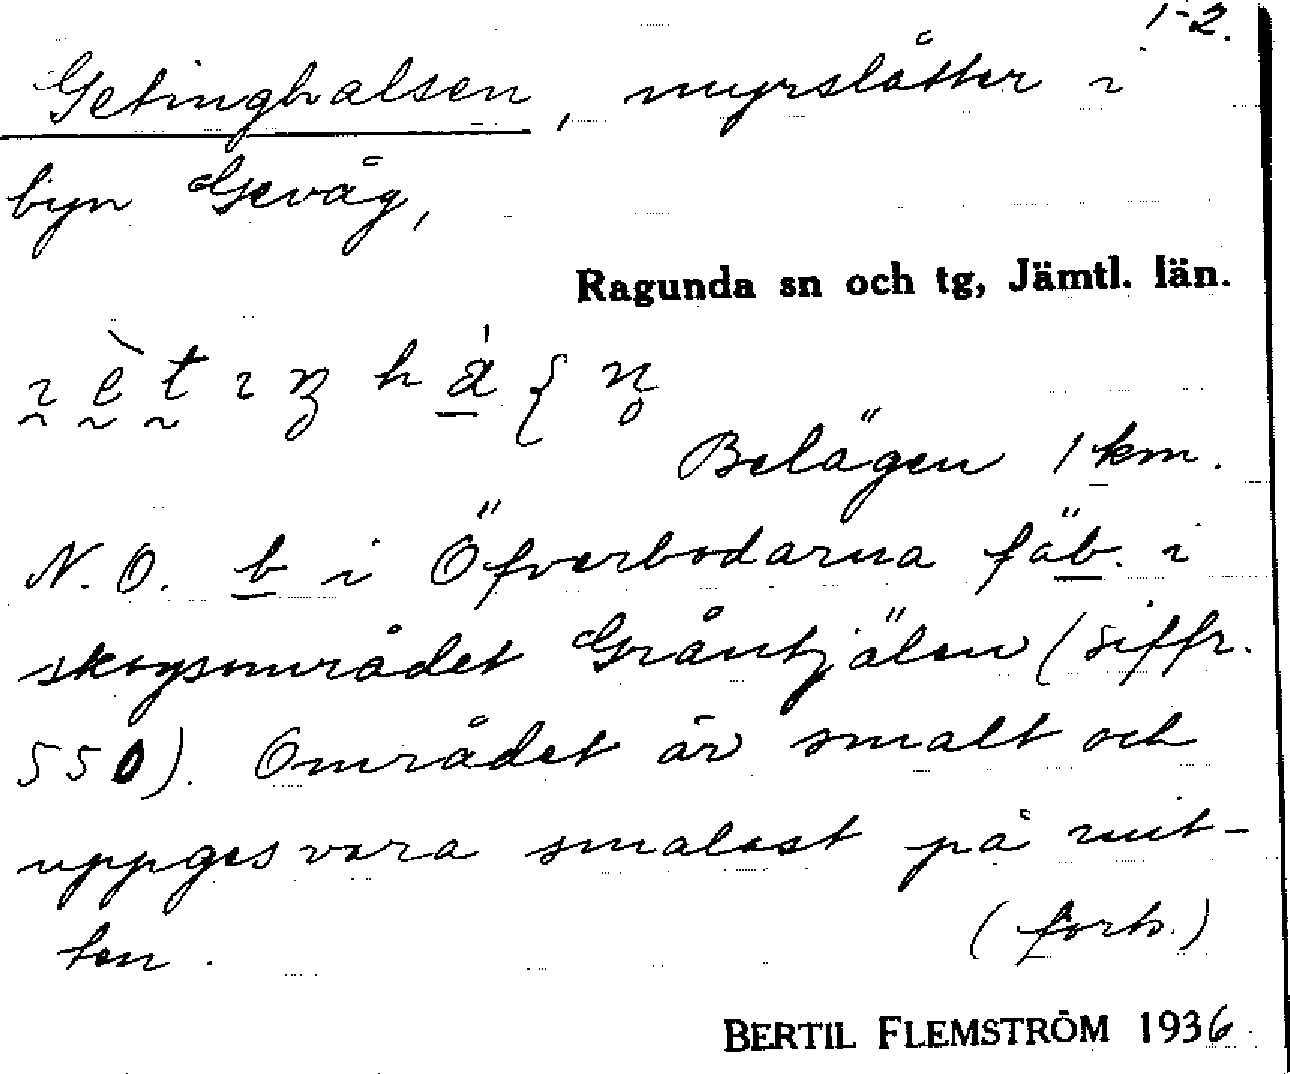 1-2.
Getinghalsen, myrslåtter i
byn Gevåg,
Ragunda sn och tg, Jämtl. län.
Belägen 1 km.
N.O. b i Öfverbodarna fäb. i
skogsområdet Gråntjälen (siffr.
550). Området är smalt och
uppges vara smalast på mit-
ten. (forts.)
BERTIL FLEMSTRÖM 1936